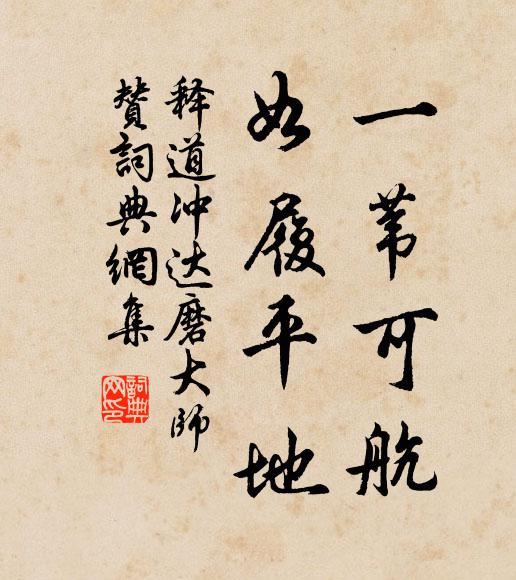 一苇可航
如履平地
释道冲达磨大师
赞词典網集
詞典网印